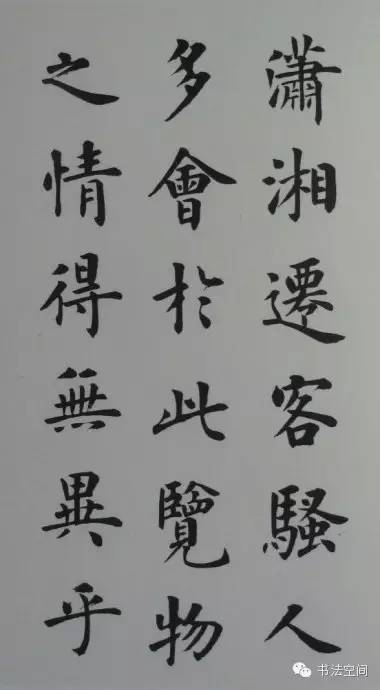 瀟湘遷客騷人
多會於此覽物
之情得無異乎
书法空间